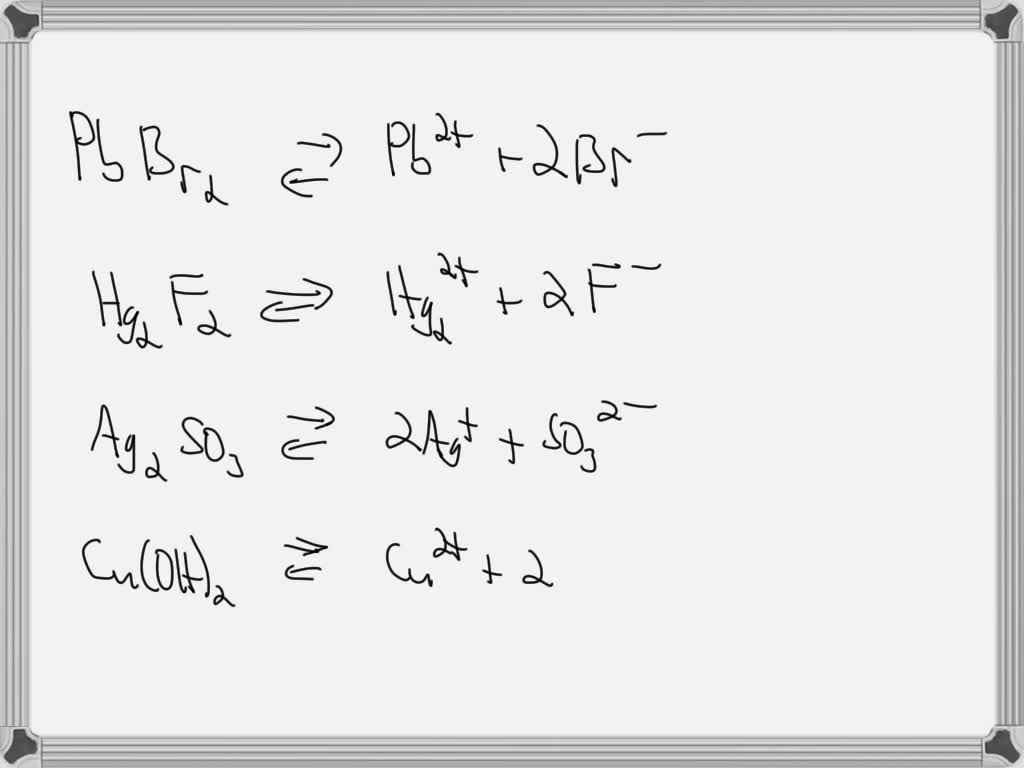 PbBr₂ ⇌ Pb²⁺ + 2Br⁻
Hg₂F₂ ⇌ Hg₂²⁺ + 2F⁻
Ag₂SO₃ ⇌ 2Ag⁺ + SO₃²⁻
Cu(OH)₂ ⇌ Cu²⁺ + 2